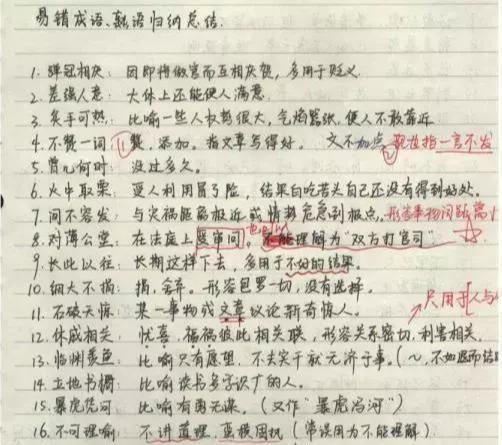 易错成语、熟语归纳总结.
1. 弹冠相庆: 因即将做官而互相庆贺, 多用于贬义.
2. 差强人意: 大体上还能使人满意.
3. 炙手可热: 比喻一些人权势很大, 气焰嚣张, 使人不敢靠近
4. 不赞一词: ①赞, 添加. 指文章写得好. 文不加点 ②现在指一言不发
5. 曾几何时: 没过多久.
6. 火中取栗: 受人利用冒了险, 结果白吃苦头自己还没有得到好处.
7. 间不容发: 与灾祸距离极近或情势危急到极点. 形容事物间距离小
8. 对薄公堂: 在法庭上受审问. 理解为“双方打官司”
9. 长此以往: 长期这样下去, 多用于不好的结果.
10. 细大不捐: 捐, 舍弃. 形容包罗一切, 没有选择.
11. 石破天惊: 某一事物或文章议论新奇惊人. 只用于人与
12. 休戚相关: 忧喜、福祸彼此相关联, 形容关系密切, 利害相关.
13. 临渊羡鱼: 比喻只有愿望, 不去实干就无济于事. (～, 不如退而结
14. 立地书橱: 比喻读书多学识广的人.
15. 暴虎凭河: 比喻有勇无谋. (又作“暴虎冯河”)
16. 不可理喻: 不讲道理, 蛮横固执 (常误用为不能理解)